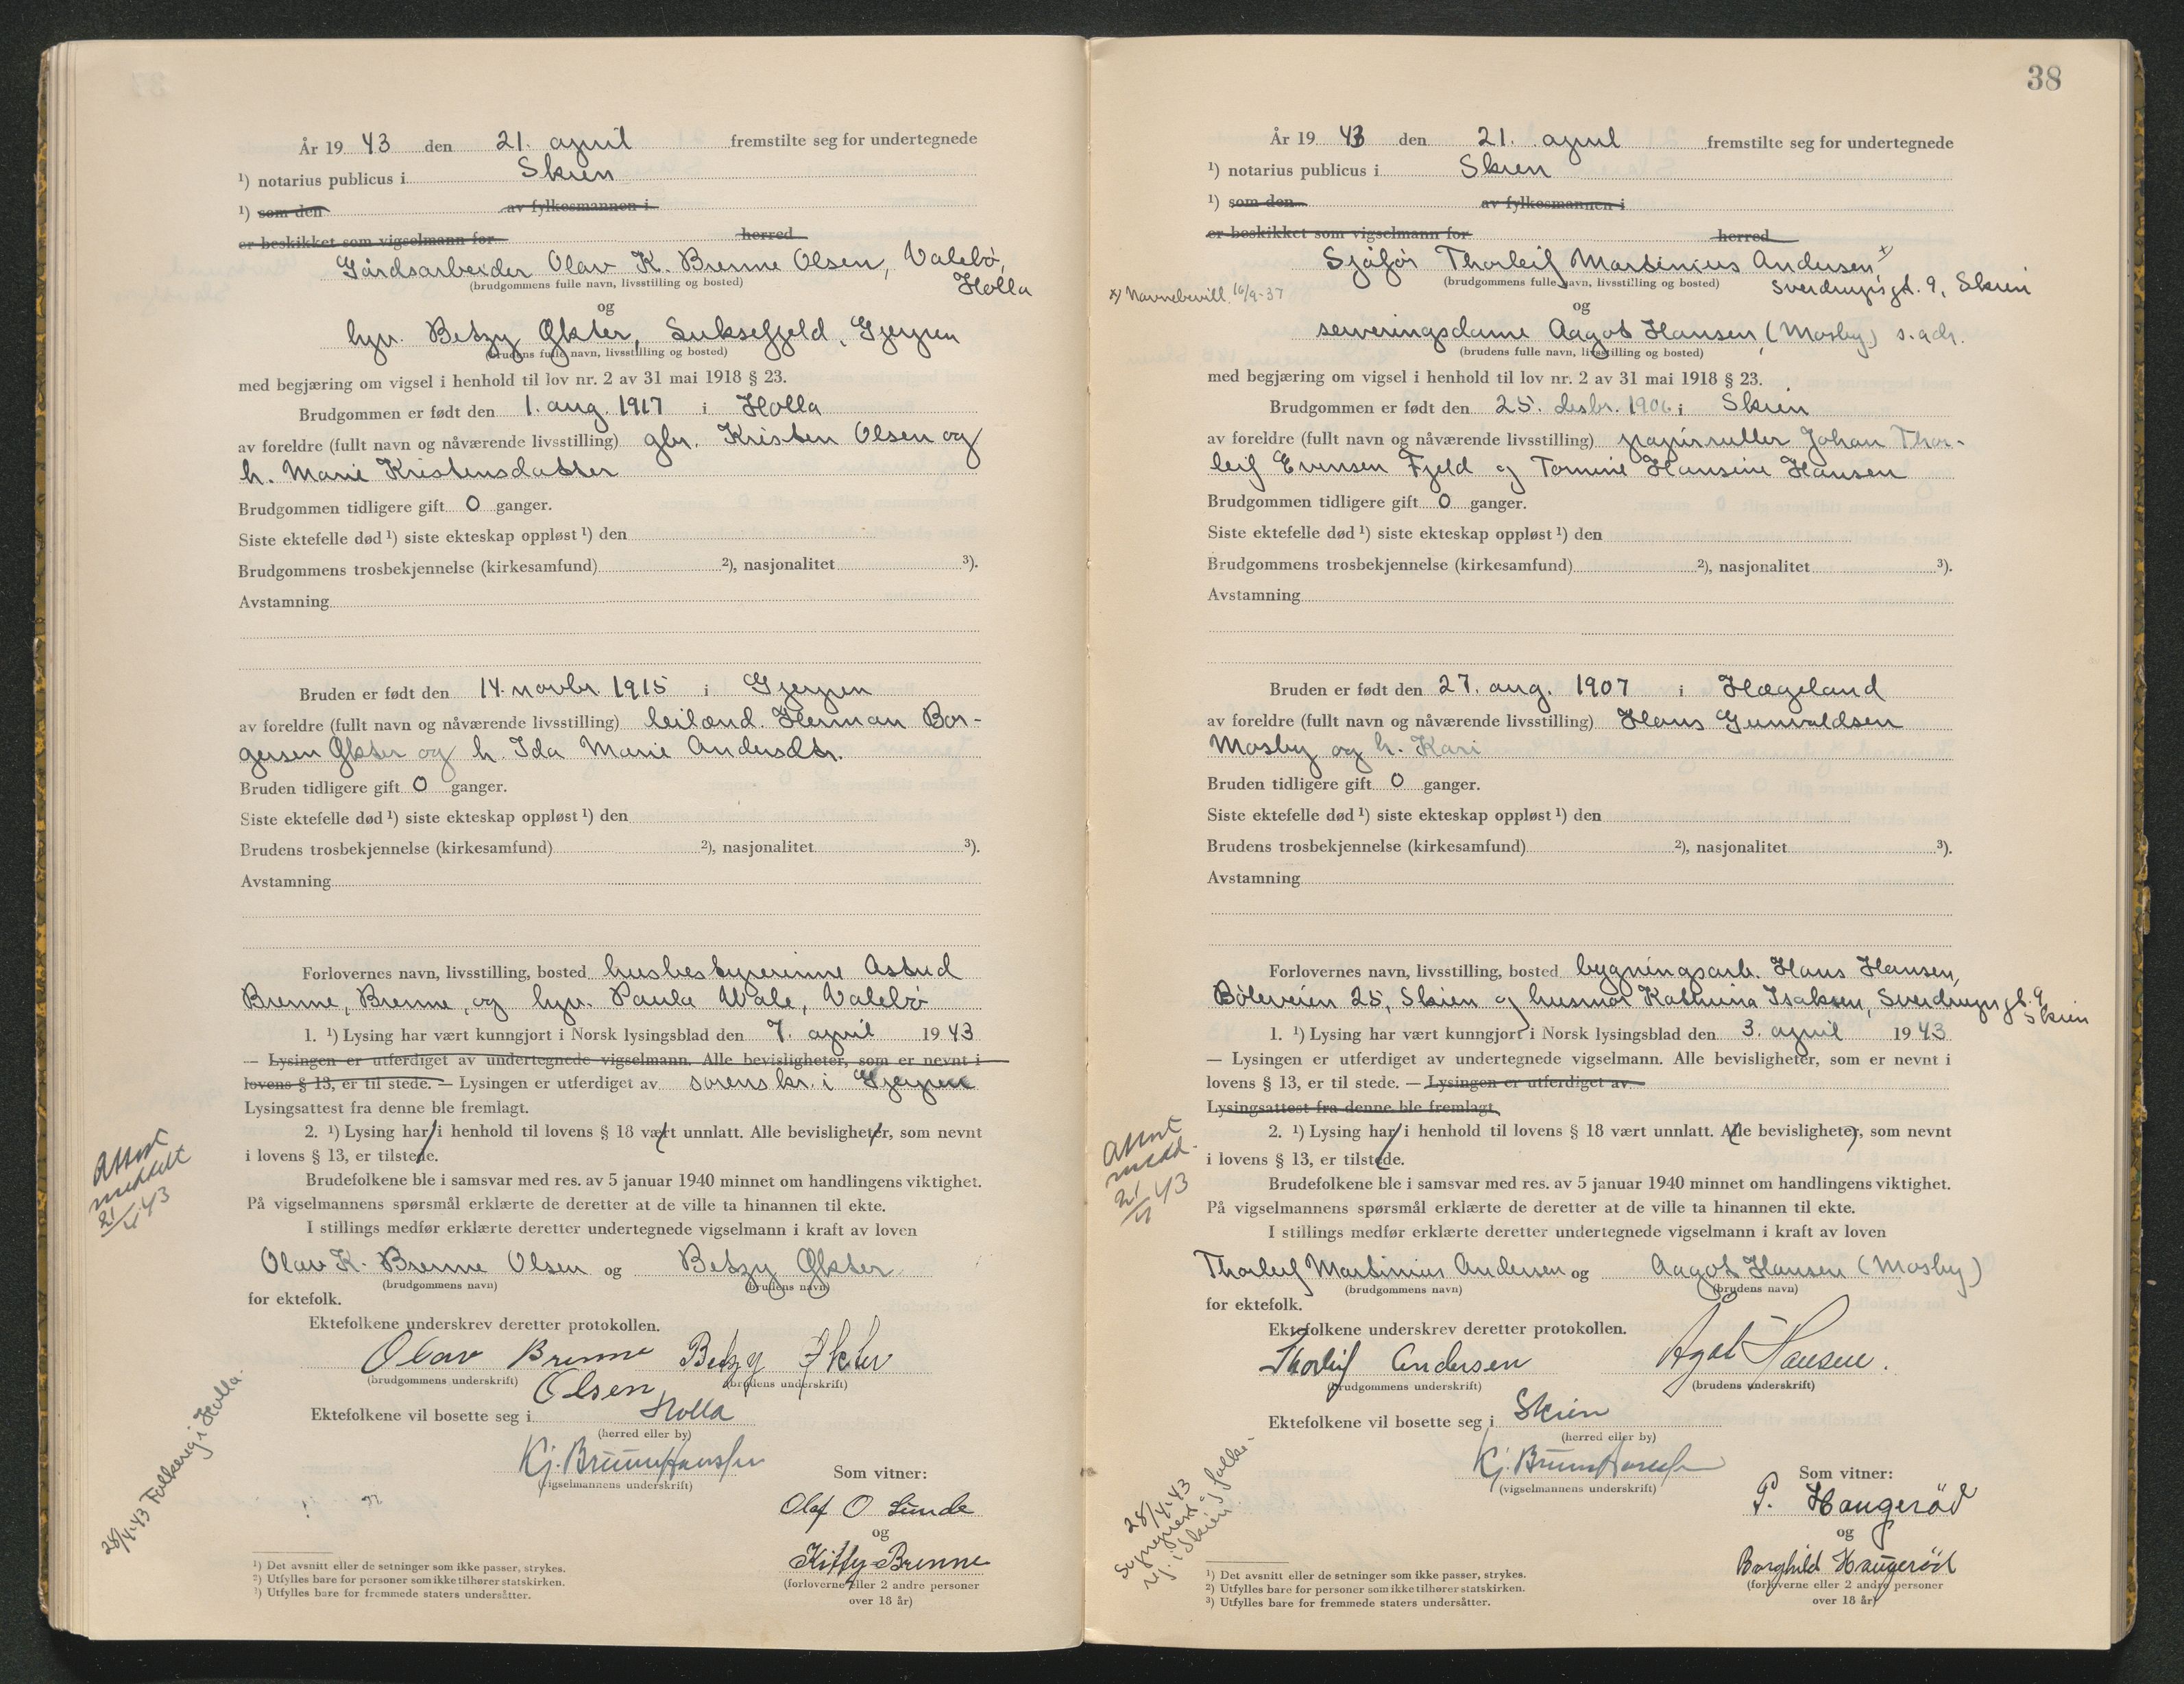 År 19 43 den 21. april fremstilte seg for undertegnede
¹) notarius publicus i Skien
¹) som den av fylkesmannen i
er beskikket som vigselmann for herred
Gårdsarbeider Olav K. Brenne Olsen, Valebø,
Holla
(brudgommens fulle navn, livsstilling og bosted)
og
hpr. Betzy Økter, Luksefjeld, Gjerpen
(brudens fulle navn, livsstilling og bosted)
med begjæring om vigsel i henhold til lov nr. 2 av 31 mai 1918 § 23.
Brudgommen er født den 1. aug. 1917 i Holla
av foreldre (fullt navn og nåværende livsstilling) gbr. Kristen Olsen og
h. Marie Kristensdatter
Brudgommen tidligere gift 0 ganger.
Siste ektefelle død ¹) siste ekteskap oppløst ¹) den
Brudgommens trosbekjennelse (kirkesamfund) ²), nasjonalitet ³).
Avstamning
Bruden er født den 14. novbr. 1915 i Gjerpen
av foreldre (fullt navn og nåværende livsstilling) leilænd. Herman Bor-
gersen Økter og h. Ida Marie Andersdtr.
Bruden tidligere gift 0 ganger.
Siste ektefelle død ¹) siste ekteskap oppløst ¹) den
Brudens trosbekjennelse (kirkesamfund) ²), nasjonalitet ³).
Avstamning
Forlovernes navn, livsstilling, bosted husbestyrerinne Astrid
Brenne, Brenne, og hpr. Paula Wale, Valebø
1. ¹) Lysing har vært kunngjort i Norsk lysingsblad den 7. april 19 43
— Lysingen er utferdiget av undertegnede vigselmann. Alle bevisligheter, som er nevnt i
lovens § 13, er til stede. — Lysingen er utferdiget av sorenskr. i Gjerpen
Lysingsattest fra denne ble fremlagt.
2. ¹) Lysing har i henhold til lovens § 18 vært unnlatt. Alle bevisligheter, som nevnt
i lovens § 13, er tilstede.
Attest
meddelt
21/4 43
Brudefolkene ble i samsvar med res. av 5 januar 1940 minnet om handlingens viktighet.
På vigselmannens spørsmål erklærte de deretter at de ville ta hinannen til ekte.
I stillings medfør erklærte deretter undertegnede vigselmann i kraft av loven
Olav K. Brenne Olsen og Betzy Økter
(brudgommens navn) (brudens navn)
for ektefolk.
Ektefolkene underskrev deretter protokollen.
Olav Brenne Betzy Økter
(brudgommens underskrift) Olsen (brudens underskrift)
Ektefolkene vil bosette seg i Holla
(herred eller by)
28/4-43 Folkereg. i Holla
Kj. Bruun Hanssen
(vigselmannens underskrift)
Som vitner:
Olaf O Lunde
og
Kitty Brenne
(forloverne eller 2 andre personer
over 18 år)
¹) Det avsnitt eller de setninger som ikke passer, strykes.
²) Utfylles bare for personer som ikke tilhører statskirken.
³) Utfylles bare for fremmede staters undersåtter.
38
År 19 43 den 21. april fremstilte seg for undertegnede
¹) notarius publicus i Skien
¹) som den av fylkesmannen i
er beskikket som vigselmann for herred
Sjåfør Thorleif Martinius Andersen, x)
Sverdrupsgt. 9, Skien
(brudgommens fulle navn, livsstilling og bosted)
x) Navnebevill. 16/9-37
og
serveringsdame Aagot Hansen, (Mosby) s. adr.
(brudens fulle navn, livsstilling og bosted)
med begjæring om vigsel i henhold til lov nr. 2 av 31 mai 1918 § 23.
Brudgommen er født den 25. desbr. 1906 i Skien
av foreldre (fullt navn og nåværende livsstilling) papirruller Johan Thor-
leif Evensen Fjeld og Tomine Hansine Hansen
Brudgommen tidligere gift 0 ganger.
Siste ektefelle død ¹) siste ekteskap oppløst ¹) den
Brudgommens trosbekjennelse (kirkesamfund) ²), nasjonalitet ³).
Avstamning
Bruden er født den 27. aug. 1907 i Hægeland
av foreldre (fullt navn og nåværende livsstilling) Hans Gunvaldsen
Mosby og h. Kari
Bruden tidligere gift 0 ganger.
Siste ektefelle død ¹) siste ekteskap oppløst ¹) den
Brudens trosbekjennelse (kirkesamfund) ²), nasjonalitet ³).
Avstamning
Forlovernes navn, livsstilling, bosted bygningsarb. Hans Hansen,
Bøleveien 25, Skien og husmor Kathrina Isaksen, Sverdrupsgt. 9
Skien
1. ¹) Lysing har vært kunngjort i Norsk lysingsblad den 3. april 19 43
— Lysingen er utferdiget av undertegnede vigselmann. Alle bevisligheter, som er nevnt i
lovens § 13, er til stede. — Lysingen er utferdiget av
Lysingsattest fra denne ble fremlagt
2. ¹) Lysing har i henhold til lovens § 18 vært unnlatt. Alle bevisligheter, som nevnt
i lovens § 13, er tilstede.
Attest
medd.
21/4 43
Brudefolkene ble i samsvar med res. av 5 januar 1940 minnet om handlingens viktighet.
På vigselmannens spørsmål erklærte de deretter at de ville ta hinannen til ekte.
I stillings medfør erklærte deretter undertegnede vigselmann i kraft av loven
Thorleif Martinius Andersen og Aagot Hansen (Mosby)
(brudgommens navn) (brudens navn)
for ektefolk.
Ektefolkene underskrev deretter protokollen.
Thorleif Andersen Ågot Hansen.
(brudgommens underskrift) (brudens underskrift)
Ektefolkene vil bosette seg i Skien
(herred eller by)
28/4-43
Sogneprest og folke-
i Skien
Kj. Bruun Hanssen
(vigselmannens underskrift)
Som vitner:
P. Haugerød
og
Borghild Haugerød
(forloverne eller 2 andre personer
over 18 år)
¹) Det avsnitt eller de setninger som ikke passer, strykes.
²) Utfylles bare for personer som ikke tilhører statskirken.
³) Utfylles bare for fremmede staters undersåtter.